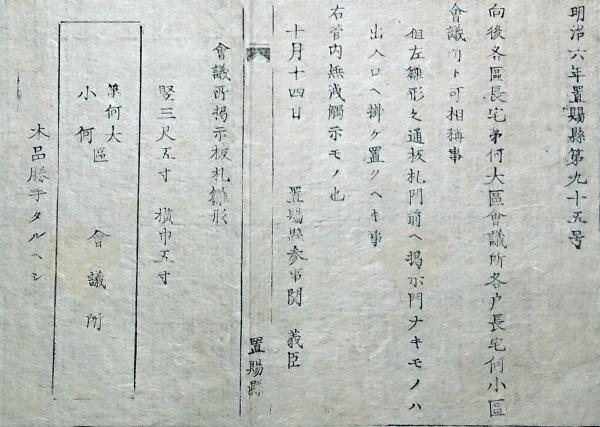 明治六年置賜縣第九十五号
向後各區長宅第何大區會議所各戸長宅何小區
會議所ト可相稱事
但左雛形之通板札門前ヘ掲示門ナキモノハ
出入口ヘ掛ケ置クヘキ事
右管内無洩觸示モノ也
十月十四日 置賜縣参事関 義臣
置賜縣
會議所掲示板札雛形
竪三尺五寸 横巾五寸
第何大
小何區 會議所
木品勝手タルヘシ